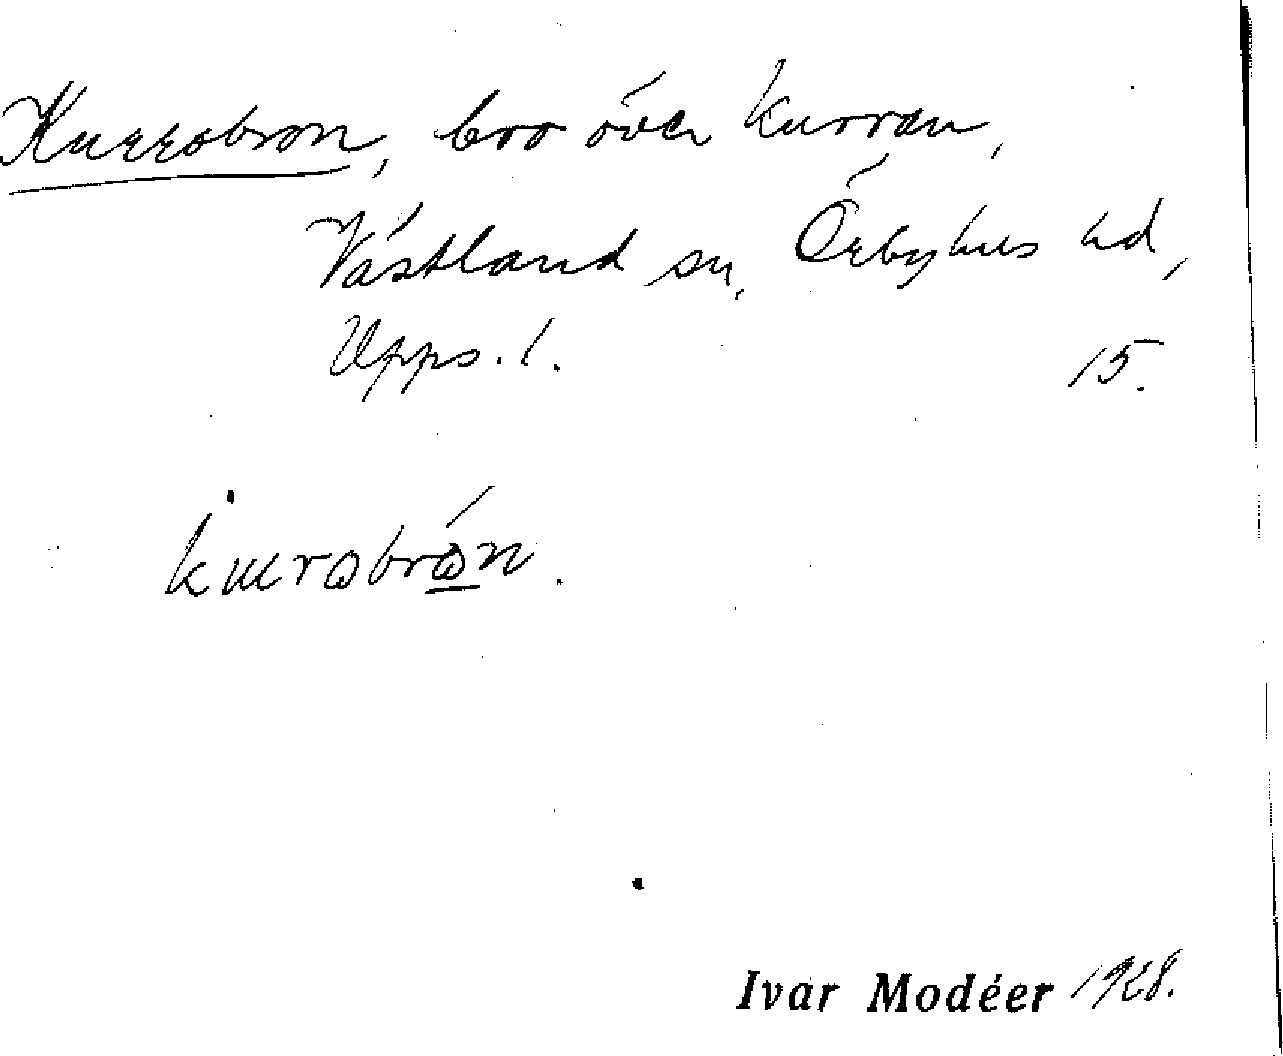 Kurrobron, bro över Kurran,
Västland sn, Örbyhus hd,
Upps. l. 15.
kurωbrώn.
Ivar Modéer 1928.